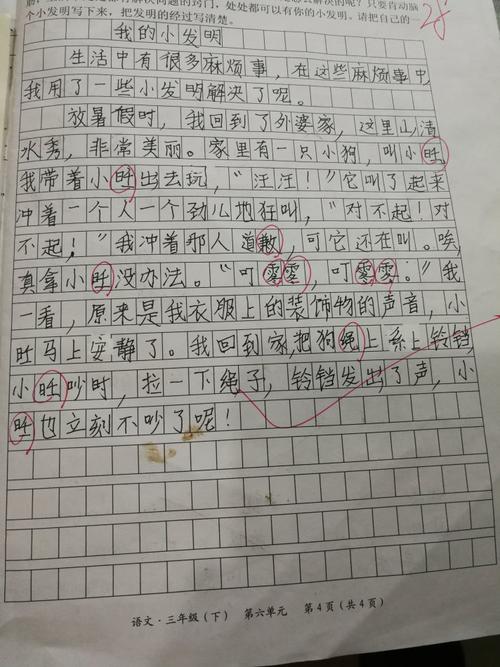 个小发明写下来，把发明的经过写清楚。请把自己的
我的小发明
生活中有很多麻烦事，在这些麻烦事中，
我用了一些小发明解决了呢。
放暑假时，我回到了外婆家，这里山清
水秀，非常美丽。家里有一只小狗，叫小旺
我带着小旺出去玩，“汪汪！”它叫了起来
冲着一个人一个劲儿地狂叫，“对不起！对
不起！”我冲着那人道歉，可它还在叫。唉，
真拿小旺没办法。“叮零零，叮零零。”我
一看，原来是我衣服上的装饰物的声音，小
旺马上安静了。我回到家，把狗绳上系上铃铛，
小旺吵时，拉一下绳子，铃铛发出了声，小
旺也立刻不吵了呢！
语文·三年级（下） 第六单元 第4页（共4页）